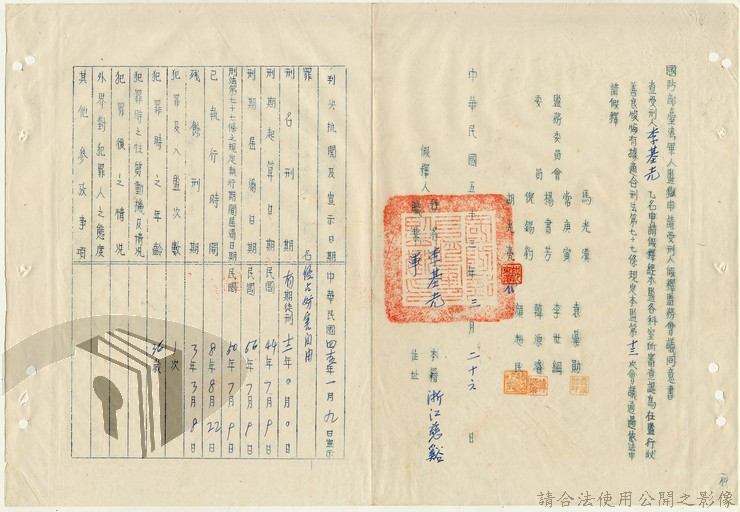 國防部臺灣軍人監獄申請受刑人假釋監務會議同意書
查受刑人李基光乙名申請假釋經本監各科室所審查認為在監行狀
善良悛悔有據適合刑法第七十七條規定本監第十三次會議通過依法申
請假釋
監務委員會
委員
馬光漢
常庚寅
楊書芳
倪錫豹
胡光亮
袁基勛
李世綱
韓源濬
中華民國五十三年三月二十六日
假釋人
姓名李基光
職業軍
本籍浙江慈谿
住址
判決機關及宣示日期 中華民國四五年一月九日宣示
罪名 侵占妨害自由
刑名刑期 有期徒刑十二年0月0日
刑期起算日期 民國44年7月9日
刑期屆滿日期 民國56年7月9日
刑法第七十七條之規定執行期間屆滿日期 民國50年7月9日
已執行時間 8年8月22日
殘餘刑期 3年3月8日
犯罪及入監次數 1次
犯罪時之年齡 36歲
犯罪時之性質動機及情況
犯罪後之情況
外界對犯罪人之態度
其他參攷事項
請合法使用公開之影像